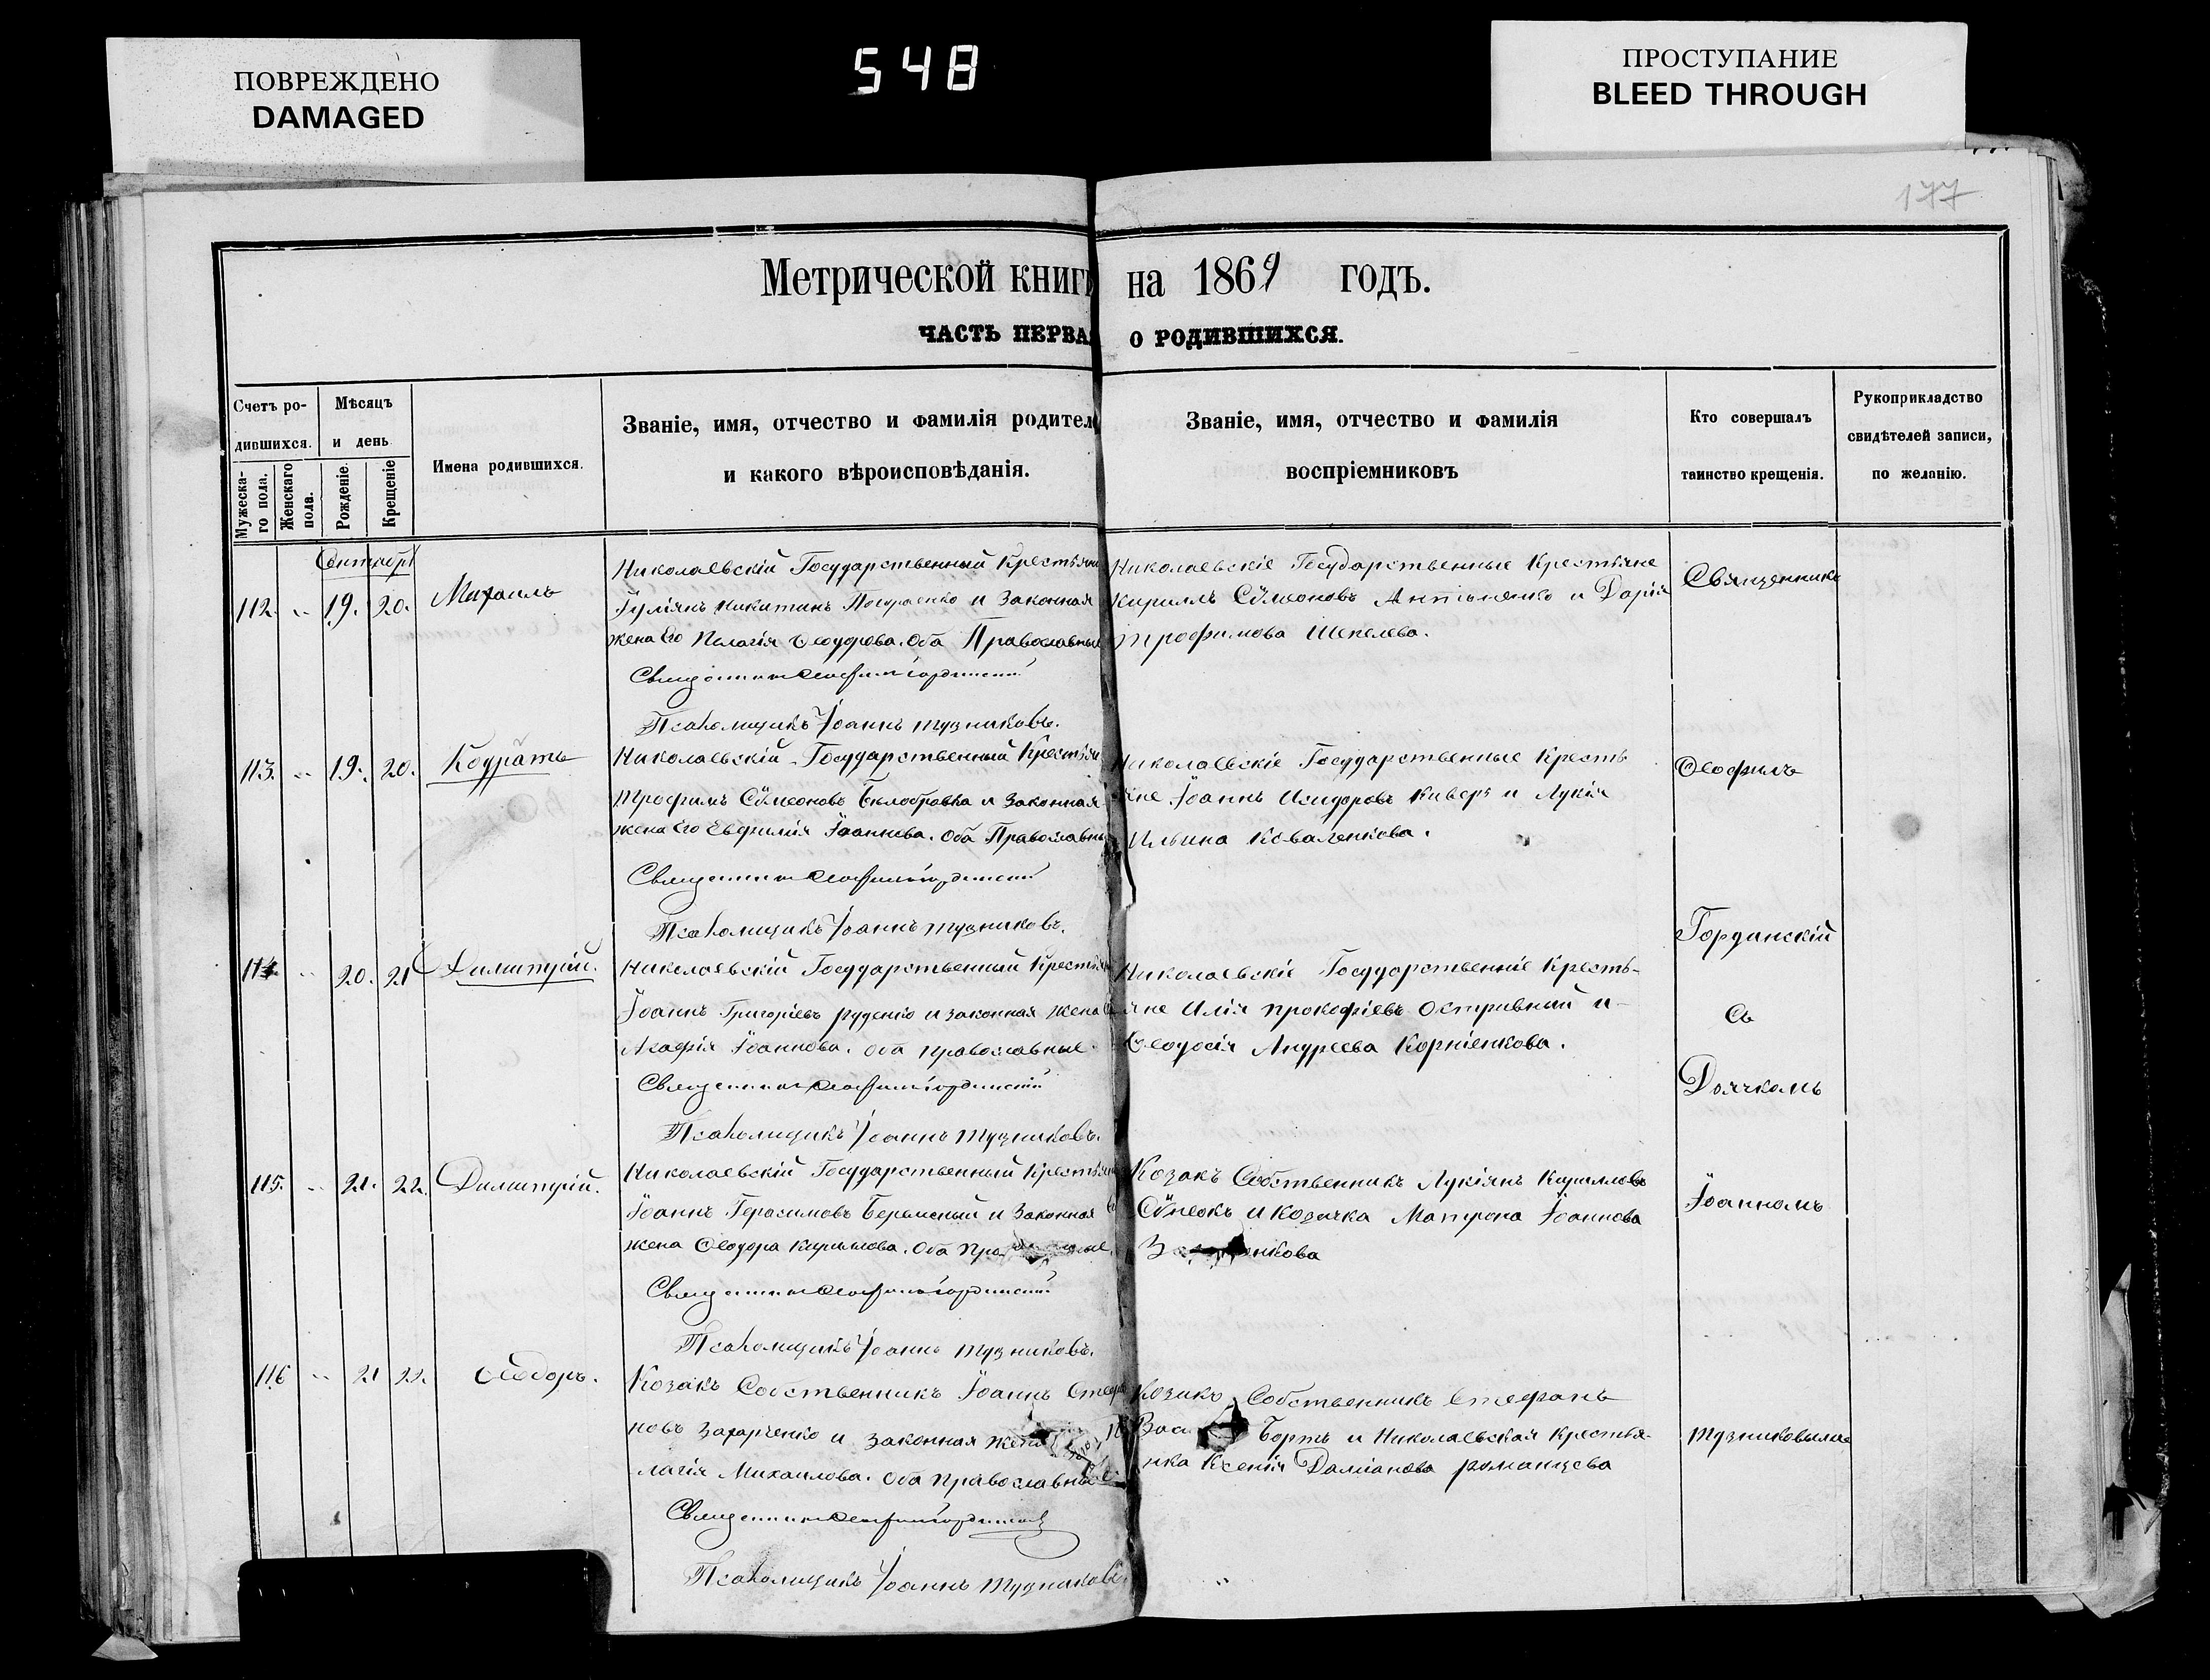 ПОВРЕЖДЕНО
DAMAGED
548
ПРОСТУПАНИЕ
BLEED THROUGH
177
Метрической книги на 1869 годъ.
ЧАСТЬ ПЕРВАЯ О РОДИВШИХСЯ.
Счетъ ро-
дившихся.
Мужеска-
го пола.
Женскаго
пола.
Мѣсяцъ
и день
Рожденіе.
Крещеніе
Имена родившихся.
Званіе, имя, отчество и фамилія родител
и какого вѣроисповѣданія.
Званіе, имя, отчество и фамилія
воспріемниковъ
Кто совершалъ
таинство крещенія.
Рукоприкладство
свидѣтелей записи,
по желанію.
Сентябрь
112. „ 19. 20. Михаилъ
Николаевскій Государственный Крестьяни
Іуліянъ Никитинъ и Законная
жена Его Пелагія Ѳеодорова. Оба Православные
Священникъ Ѳеофилъ Горданскій
Псаломщикъ Іоаннъ Тузниковъ.
Николаевскіе Государственные Крестьяне
Кирилъ Сѵмеоновъ и Дарія
Трофимова Шепелева.
113. „ 19. 20. Кодратъ
Николаевскій Государственный Крестьяни
Трофимъ Сѵмеоновъ Білобровка и Законная
жена Его Евфимія Іоаннова. Оба Православны
Священникъ Ѳеофилъ Горданскій
Псаломщикъ Іоаннъ Тузниковъ.
Николаевскіе Государственные Кресть
яне Іоаннъ Исидоровъ Киверъ и Лукія
Ильина Коваленкова.
114. „ 20. 21 Димитрій.
Николаевскій Государственный Крестьян
Іоаннъ Григоріевъ Руденко и законная жена
Агафія Іоаннова. Оба православные.
Священникъ Ѳеофилъ Горданскій
Псаломщикъ Іоаннъ Тузниковъ.
Николаевскіе Государственніе Кресть-
яне Илія Прокофіевъ Остривный и
Ѳеодосія Андреева Корніенкова.
115. „ 21. 22. Димитрій.
Николаевскій Государственный Крестьяни
Іоаннъ Герасимовъ Беремсный и Законная
жена Ѳеодора Кирилова. Оба Пра ные.
Священникъ Ѳеофилъ Горданскій
Псаломщикъ Іоаннъ Тузниковъ.
Козакъ Собственникъ Лукіянъ Кирилловъ
и Козачка Матрона Іоаннова
З енкова
116 „ 21 22. Ѳеодоръ.
Козакъ Собственникъ Іоаннъ Стефа
новъ Захарченко и Законная жена Пе
лагія Михаилова. Оба православные
Священникъ Ѳеофилъ Горданскій
Псаломщикъ Іоаннъ Тузниковъ.
Козакъ Собственникъ Стефанъ
Васи Бортъ и Николаевская крестья-
нка Ксенія Даміанова Романцева
„
Священникъ
Ѳеофилъ
Горданскій
Съ
Дьячкомъ
Іоанномъ
Тузниковымъ